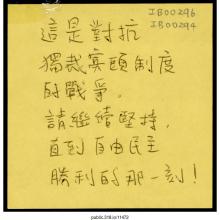 IB00296
IB00294
這是對抗
獨裁寡頭制度
的戰爭。
請繼續堅持,
直到自由民主
勝利的那一刻!
public.318.io/11473